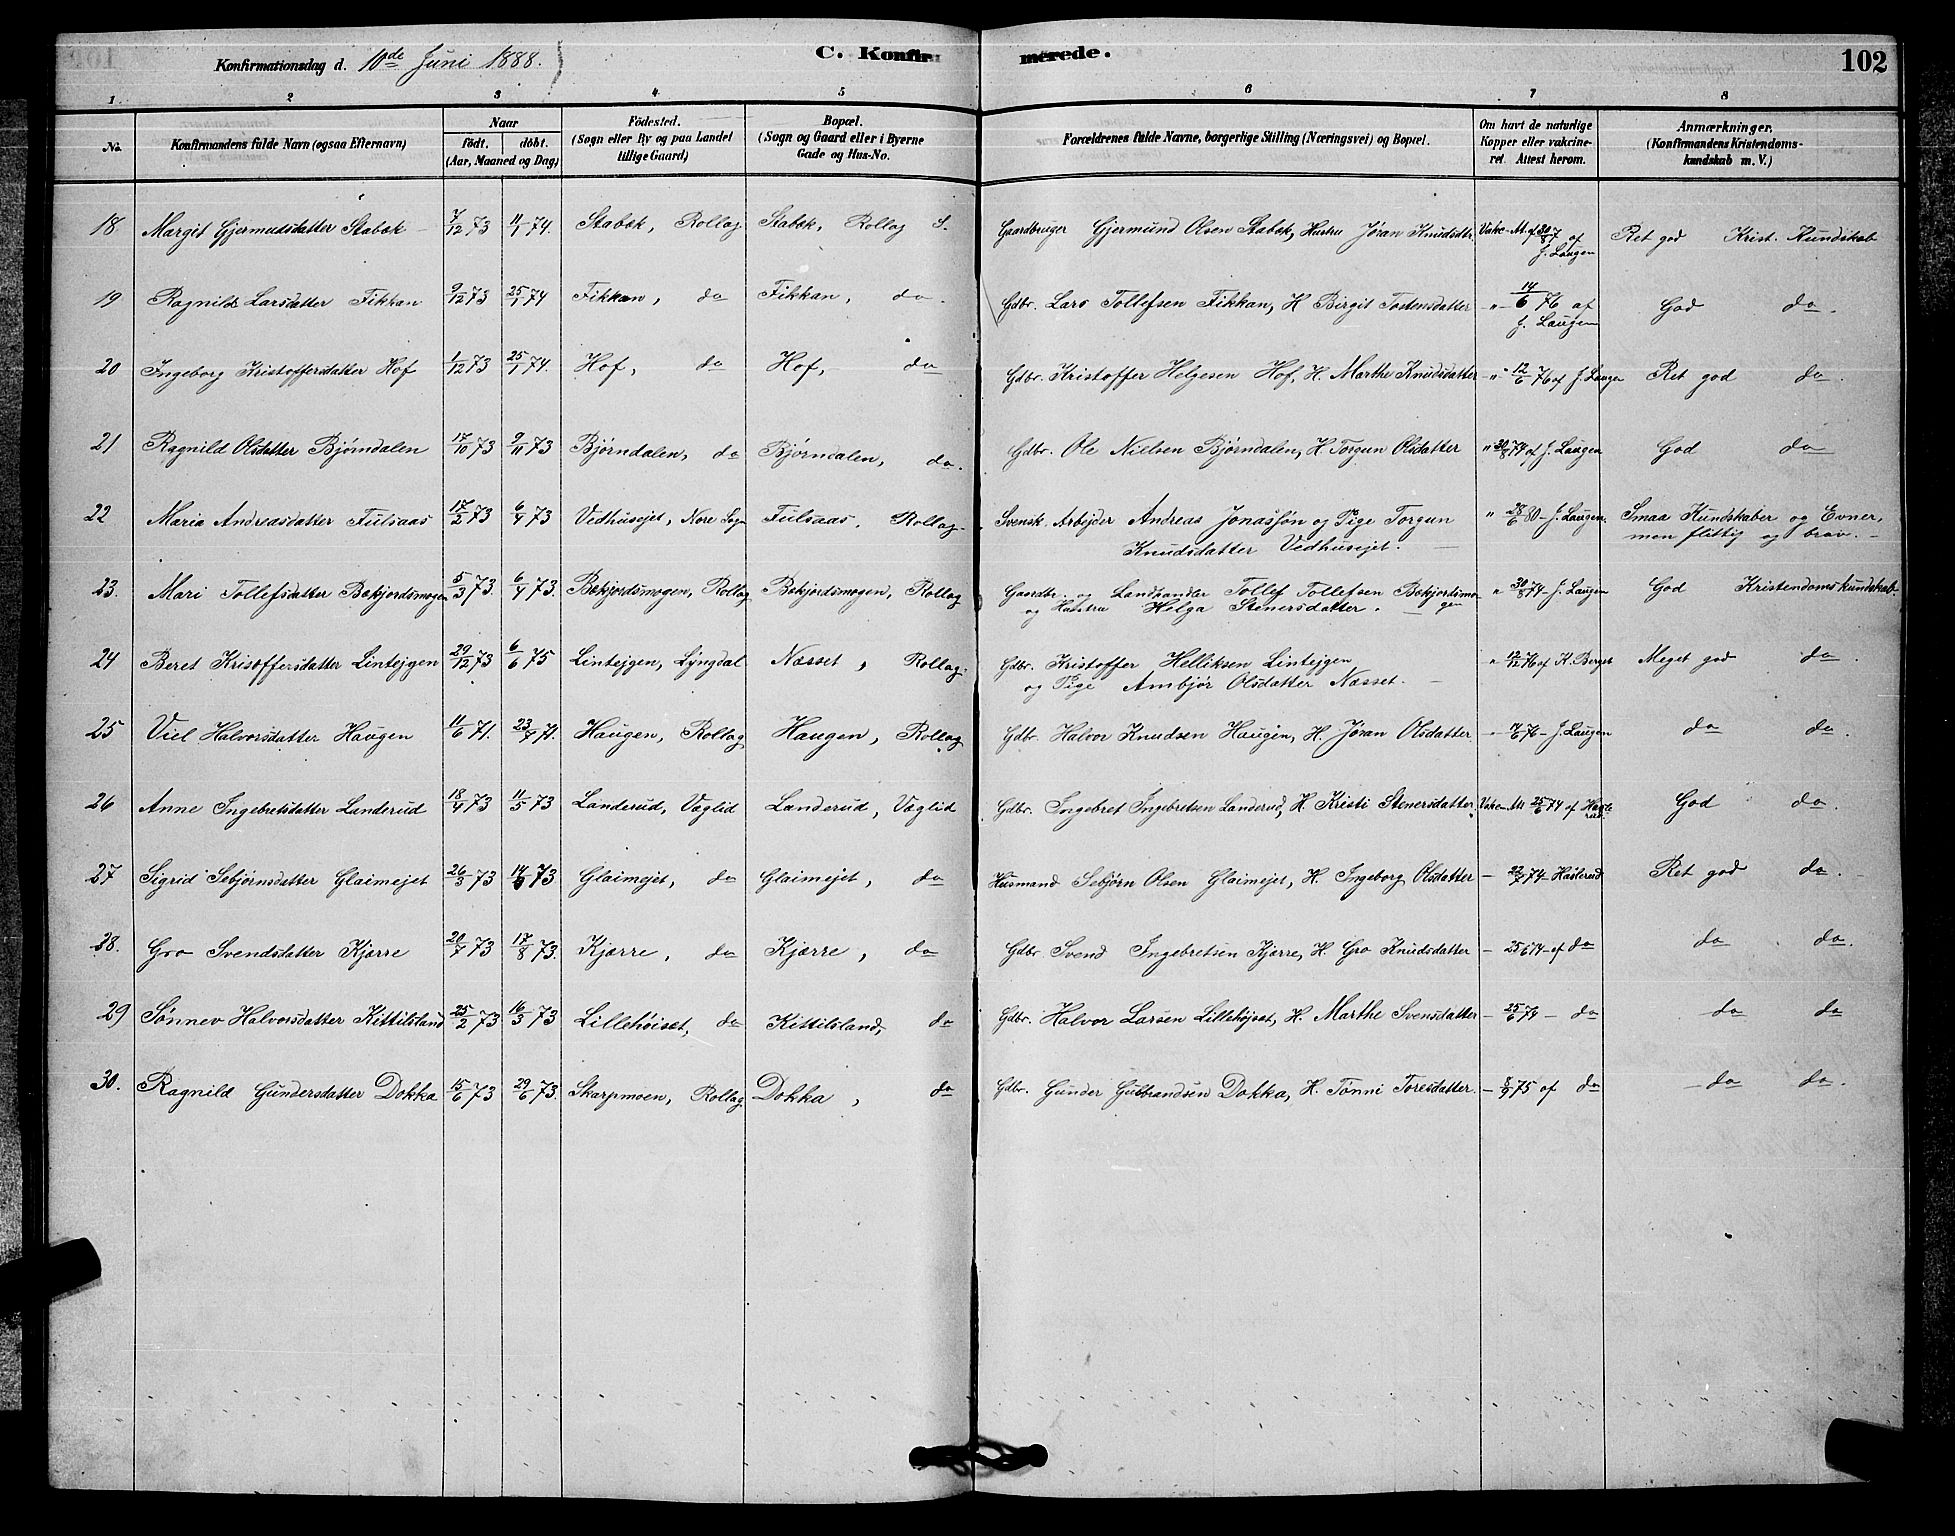 Konfirmationsdag d. 10de Juni 1888.
C. Konfirmerede.
102
1 2 3 4 5 6 7 8
No. Konfirmandens fulde Navn (ogsaa Efternavn) Naar født. døbt. (Aar, Maaned og Dag) Fødested. (Sogn eller By og paa Landet tillige Gaard) Bopæl. (Sogn og Gaard eller i Byerne Gade og Hus-No. Forældrenes fulde Navne, borgerlige Stilling (Næringsvei) og Bopæl. Om havt de naturlige Kopper eller vakcineret. Attest herom. Anmærkninger. (Konfirmandens Kristendomskundskab m. V.)
18 Margit Gjermudsdatter Stabæk 7/12 73 11/1 74. Stabæk, Rollag Stabæk, Rollag S. Gaardbruger Gjermund Olsen Stabæk, Hustru Jøran Knudsdtr. af J. Laugen Ret god Krist. Kundskab
19 Ragnild Larsdatter Fikkan 9/12 73 25/1 74 Fikkan, do Fikkan, do. Gdbr. Lars Tollefsen Fikkan, H Birgit Tostensdatter -"- 14/6 76 af J. Laugen God do.
20 Ingeborg Kristoffersdatter Hof 1/12 73 25/1 74. Hof, do Hof, do Gdbr. Kristoffer Helgesen Hof, H. Marthe Knudsdatter -"- 12/6 76 af J. Laugen Ret god do.
21 Ragnild Olsdatter Bjørndalen 17/10 73 9/11 73 Bjørndalen, do Bjørndalen, do. Gdbr. Ole Nielsen Bjørndalen, H Torgun Olsdatter " 30/8 74 af J. Laugen God do
22 Maria Andreasdatter Fulsaas 17/2 73 6/4 73 Vedhusejet, Nore Sogn Fulsaas, Rollag Svensk. Arbejder Andreas Jonasson og Pige Torgun Knudsdatter Vedhusejet. " 28/6 80 - J. Laugen. Smaa Kundskaber og Evner, men flittig og brav.
23. Mari Tollefsdatter Bekjordsmogen 5/3 73. 6/4 73. Bekjordsmogen, Rollag Bekjordsmogen, Rollag Gaardbr. og Landhandler Tollef Tollefsen Bekjordsmogen og Hustru Helga Stenersdatter. " 30/8 74 - J. Laugen God Kristendomskundskab.
24 Beret Kristoffersdatter Lintejgen 29/12 73 6/6 75 Lintejgen, Lyngdal Næsset, Rollag. Gdbr. Kristoffer Helliksen Lintejgen og Pige Ambjør Olsdatter Næsset. " 12/12 76 af K. Berget Meget god do.
25 Viel Halvorsdatter Haugen 11/6 71. 23/7 71. Haugen, Rollag Haugen, Rollag Gdbr. Halvor Knudsen Haugen, H. Jøran Olsdatter. " 14/6 76 - J. Laugen do do.
26 Anne Ingebretsdatter Landerud 18/4 73 11/5 73 Landerud, Væglid Landerud, Væglid Gdbr. Ingebret Ingebretsen Landerud, H Kristi Stenersdatter, Vakc. At 25/6 74 af God do.
27 Sigrid Sebjørnsdatter Glaimejet 26/3 73 14/ 73 Glaimejet, do Glaimejet, do Husmand Sebjørn Olsen Glaimejet, H. Ingeborg Olsdatter - 22/7 74 - Haslerud Ret god do.
28. Gro Svendsdatter Kjærre 20/7 73 17/8 73. Kjærre, do Kjærre, do Gdbr. Svend Ingebretsen Kjærre, H. Gro Knudsdatter - 25/6 74 - af do do do.
29 Sønnev Halvorsdatter Kittilsland 25/2 73 16/3 73 Lillehøiset, do Kittilsland, do Gdbr. Halvor Larsen Lillehøjset, H. Marthe Svensdatter - 25/6 74 - do do do
30. Ragnild Gundersdatter Dokka 15/6 73 29/6 73. Skarpmoen, Rollag Dokka, do Gdbr. Gunder Gulbrandsen Dokka, H. Tønni Toresdatter. - 8/9 75 af do do do.